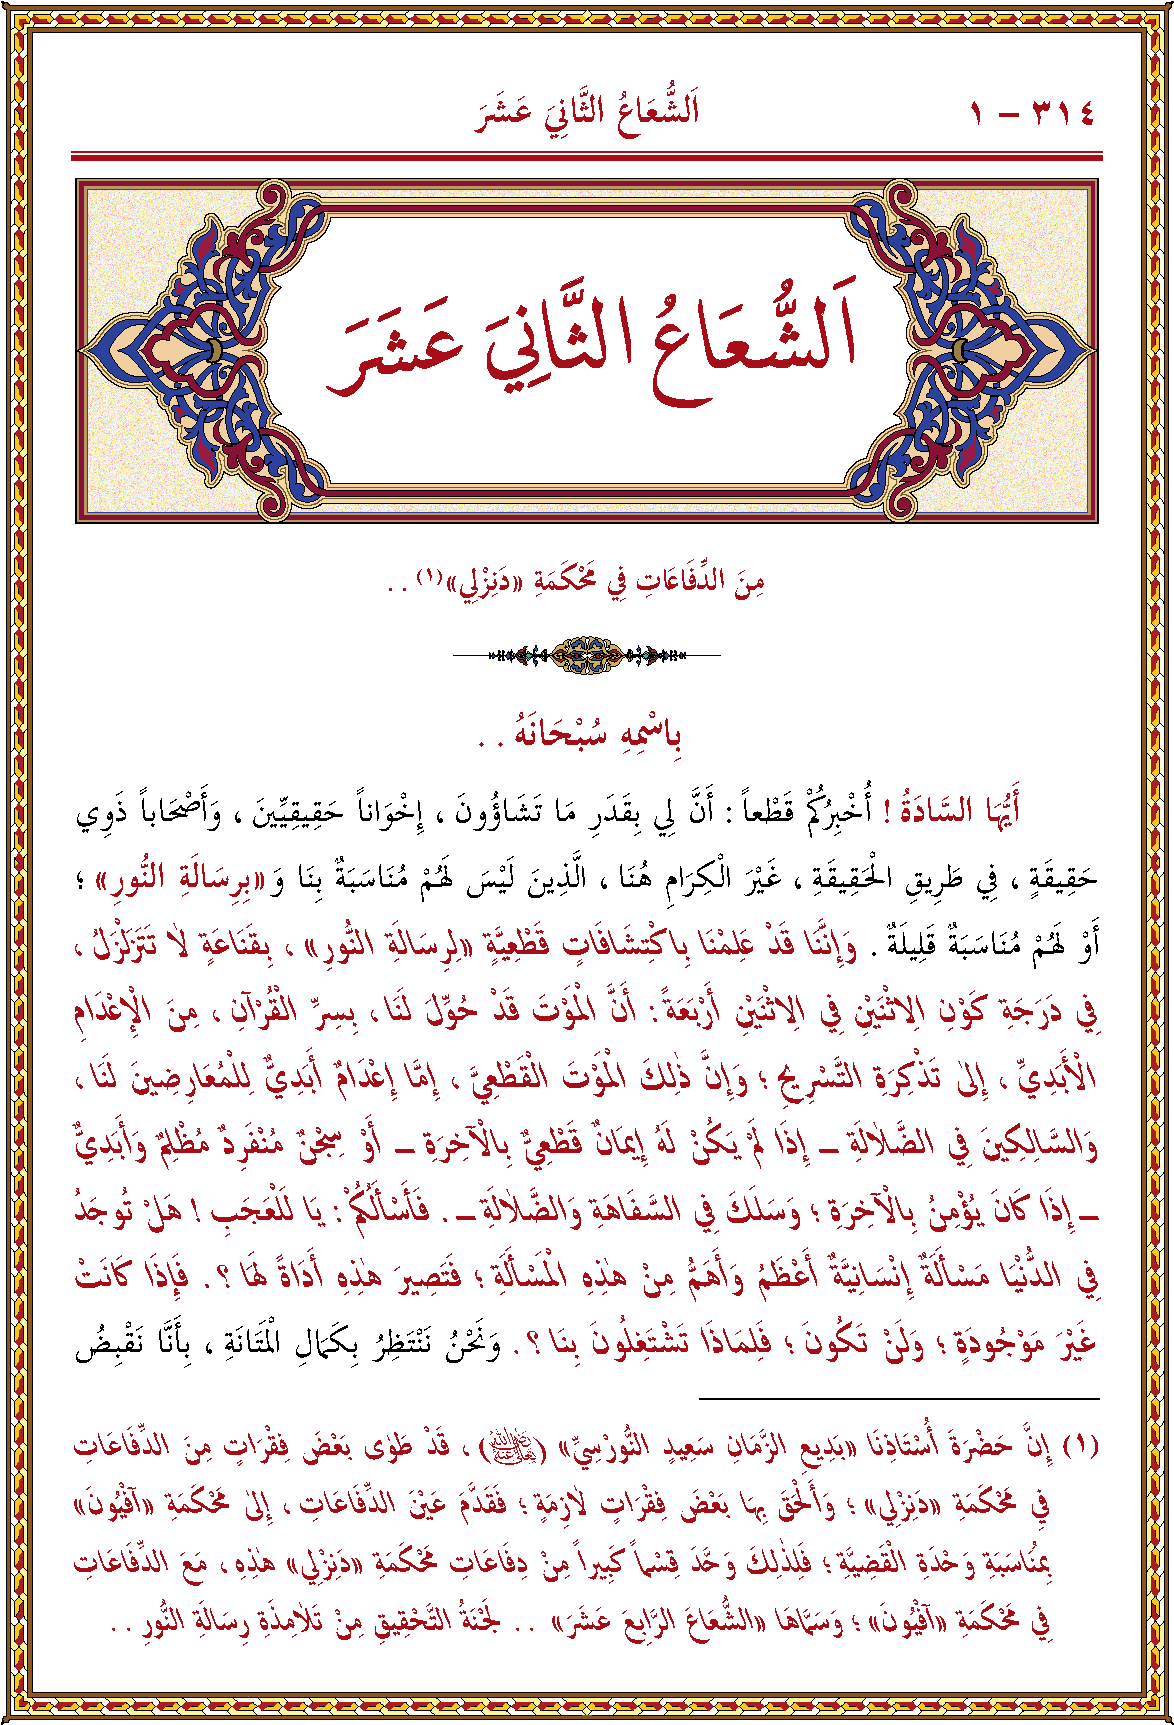 ٣١٤ – ١
اَلشُّعَاعُ الثَّانِيَ عَشَرَ
اَلشُّعَاعُ الثَّانِيَ عَشَرَ
مِنَ الدِّفَاعَاتِ فِي مَحْكَمَةِ «دَنِزْلِي»(١) . .
بِاسْمِهِ سُبْحَانَهُ . .
أَيُّهَا السَّادَةُ ! أُخْبِرُكُمْ قَطْعاً : أَنَّ لِي بِقَدَرِ مَا تَشَاؤُونَ ، إِخْوَاناً حَقِيقِيِّينَ ، وَأَصْحَاباً ذَوِي
حَقِيقَةٍ ، فِي طَرِيقِ الْحَقِيقَةِ ، غَيْرَ الْكِرَامِ هُنَا ، الَّذِينَ لَيْسَ لَهُمْ مُنَاسَبَةٌ بِنَا وَ«بِرِسَالَةِ النُّورِ» ؛
أَوْ لَهُمْ مُنَاسَبَةٌ قَلِيلَةٌ . وَإِنَّنَا قَدْ عَلِمْنَا بِاكْتِشَافَاتٍ قَطْعِيَّةٍ «لِرِسَالَةِ النُّورِ» ، بِقَنَاعَةٍ لَا تَتَزَلْزَلُ ،
فِي دَرَجَةِ كَوْنِ الِاثْنَيْنِ فِي الِاثْنَيْنِ أَرْبَعَةً : أَنَّ الْمَوْتَ قَدْ حُوِّلَ لَنَا ، بِسِرِّ الْقُرْآنِ ، مِنَ الْإِعْدَامِ
الْأَبَدِيِّ ، إِلىٰ تَذْكِرَةِ التَّسْرِيحِ ؛ وَإِنَّ ذٰلِكَ الْمَوْتَ الْقَطْعِيَّ ، إِمَّا إِعْدَامٌ أَبَدِيٌّ لِلْمُعَارِضِينَ لَنَا ،
وَالسَّالِكِينَ فِي الضَّلَالَةِ – إِذَا لَمْ يَكُنْ لَهُ إِيمَانٌ قَطْعِيٌّ بِالْآخِرَةِ – أَوْ سِجْنٌ مُنْفَرِدٌ مُظْلِمٌ وَأَبَدِيٌّ
– إِذَا كَانَ يُؤْمِنُ بِالْآخِرَةِ ؛ وَسَلَكَ فِي السَّفَاهَةِ وَالضَّلَالَةِ – . فَأَسْأَلُكُمْ : يَا لَلْعَجَبِ ! هَلْ تُوجَدُ
فِي الدُّنْيَا مَسْأَلَةٌ إِنْسَانِيَّةٌ أَعْظَمُ وَأَهَمُّ مِنْ هٰذِهِ الْمَسْأَلَةِ ؛ فَتَصِيرَ هٰذِهِ أَدَاةً لَهَا ؟ . فَإِذَا كَانَتْ
غَيْرَ مَوْجُودَةٍ ؛ وَلَنْ تَكُونَ ؛ فَلِمَاذَا تَشْتَغِلُونَ بِنَا ؟ . وَنَحْنُ نَنْتَظِرُ بِكَمَالِ الْمَتَانَةِ ، بِأَنَّنَا نَقْبِضُ
(١) إِنَّ حَضْرَةَ أُسْتَاذِنَا «بَدِيعِ الزَّمَانِ سَعِيدٍ النُّورْسِيِّ» (رضي الله تعالى عنه) ، قَدْ طَوٰى بَعْضَ فِقْرَاتٍ مِنَ الدِّفَاعَاتِ
فِي مَحْكَمَةِ «دَنِزْلِي» ؛ وَأَلْحَقَ بِهَا بَعْضَ فِقْرَاتٍ لَازِمَةٍ ؛ فَقَدَّمَ عَيْنَ الدِّفَاعَاتِ ، إِلىٰ مَحْكَمَةِ «آفْيُونَ»
بِمُنَاسَبَةِ وَحْدَةِ الْقَضِيَّةِ ؛ فَلِذٰلِكَ وَحَّدَ قِسْماً كَبِيراً مِنْ دِفَاعَاتِ مَحْكَمَةِ «دَنِزْلِي» هٰذِهِ ، مَعَ الدِّفَاعَاتِ
فِي مَحْكَمَةِ «آفْيُونَ» ؛ وَسَمَّاهَا «الشُّعَاعَ الرَّابِعَ عَشَرَ» . . لَجْنَةُ التَّحْقِيقِ مِنْ تَلَامِذَةِ رِسَالَةِ النُّورِ . .